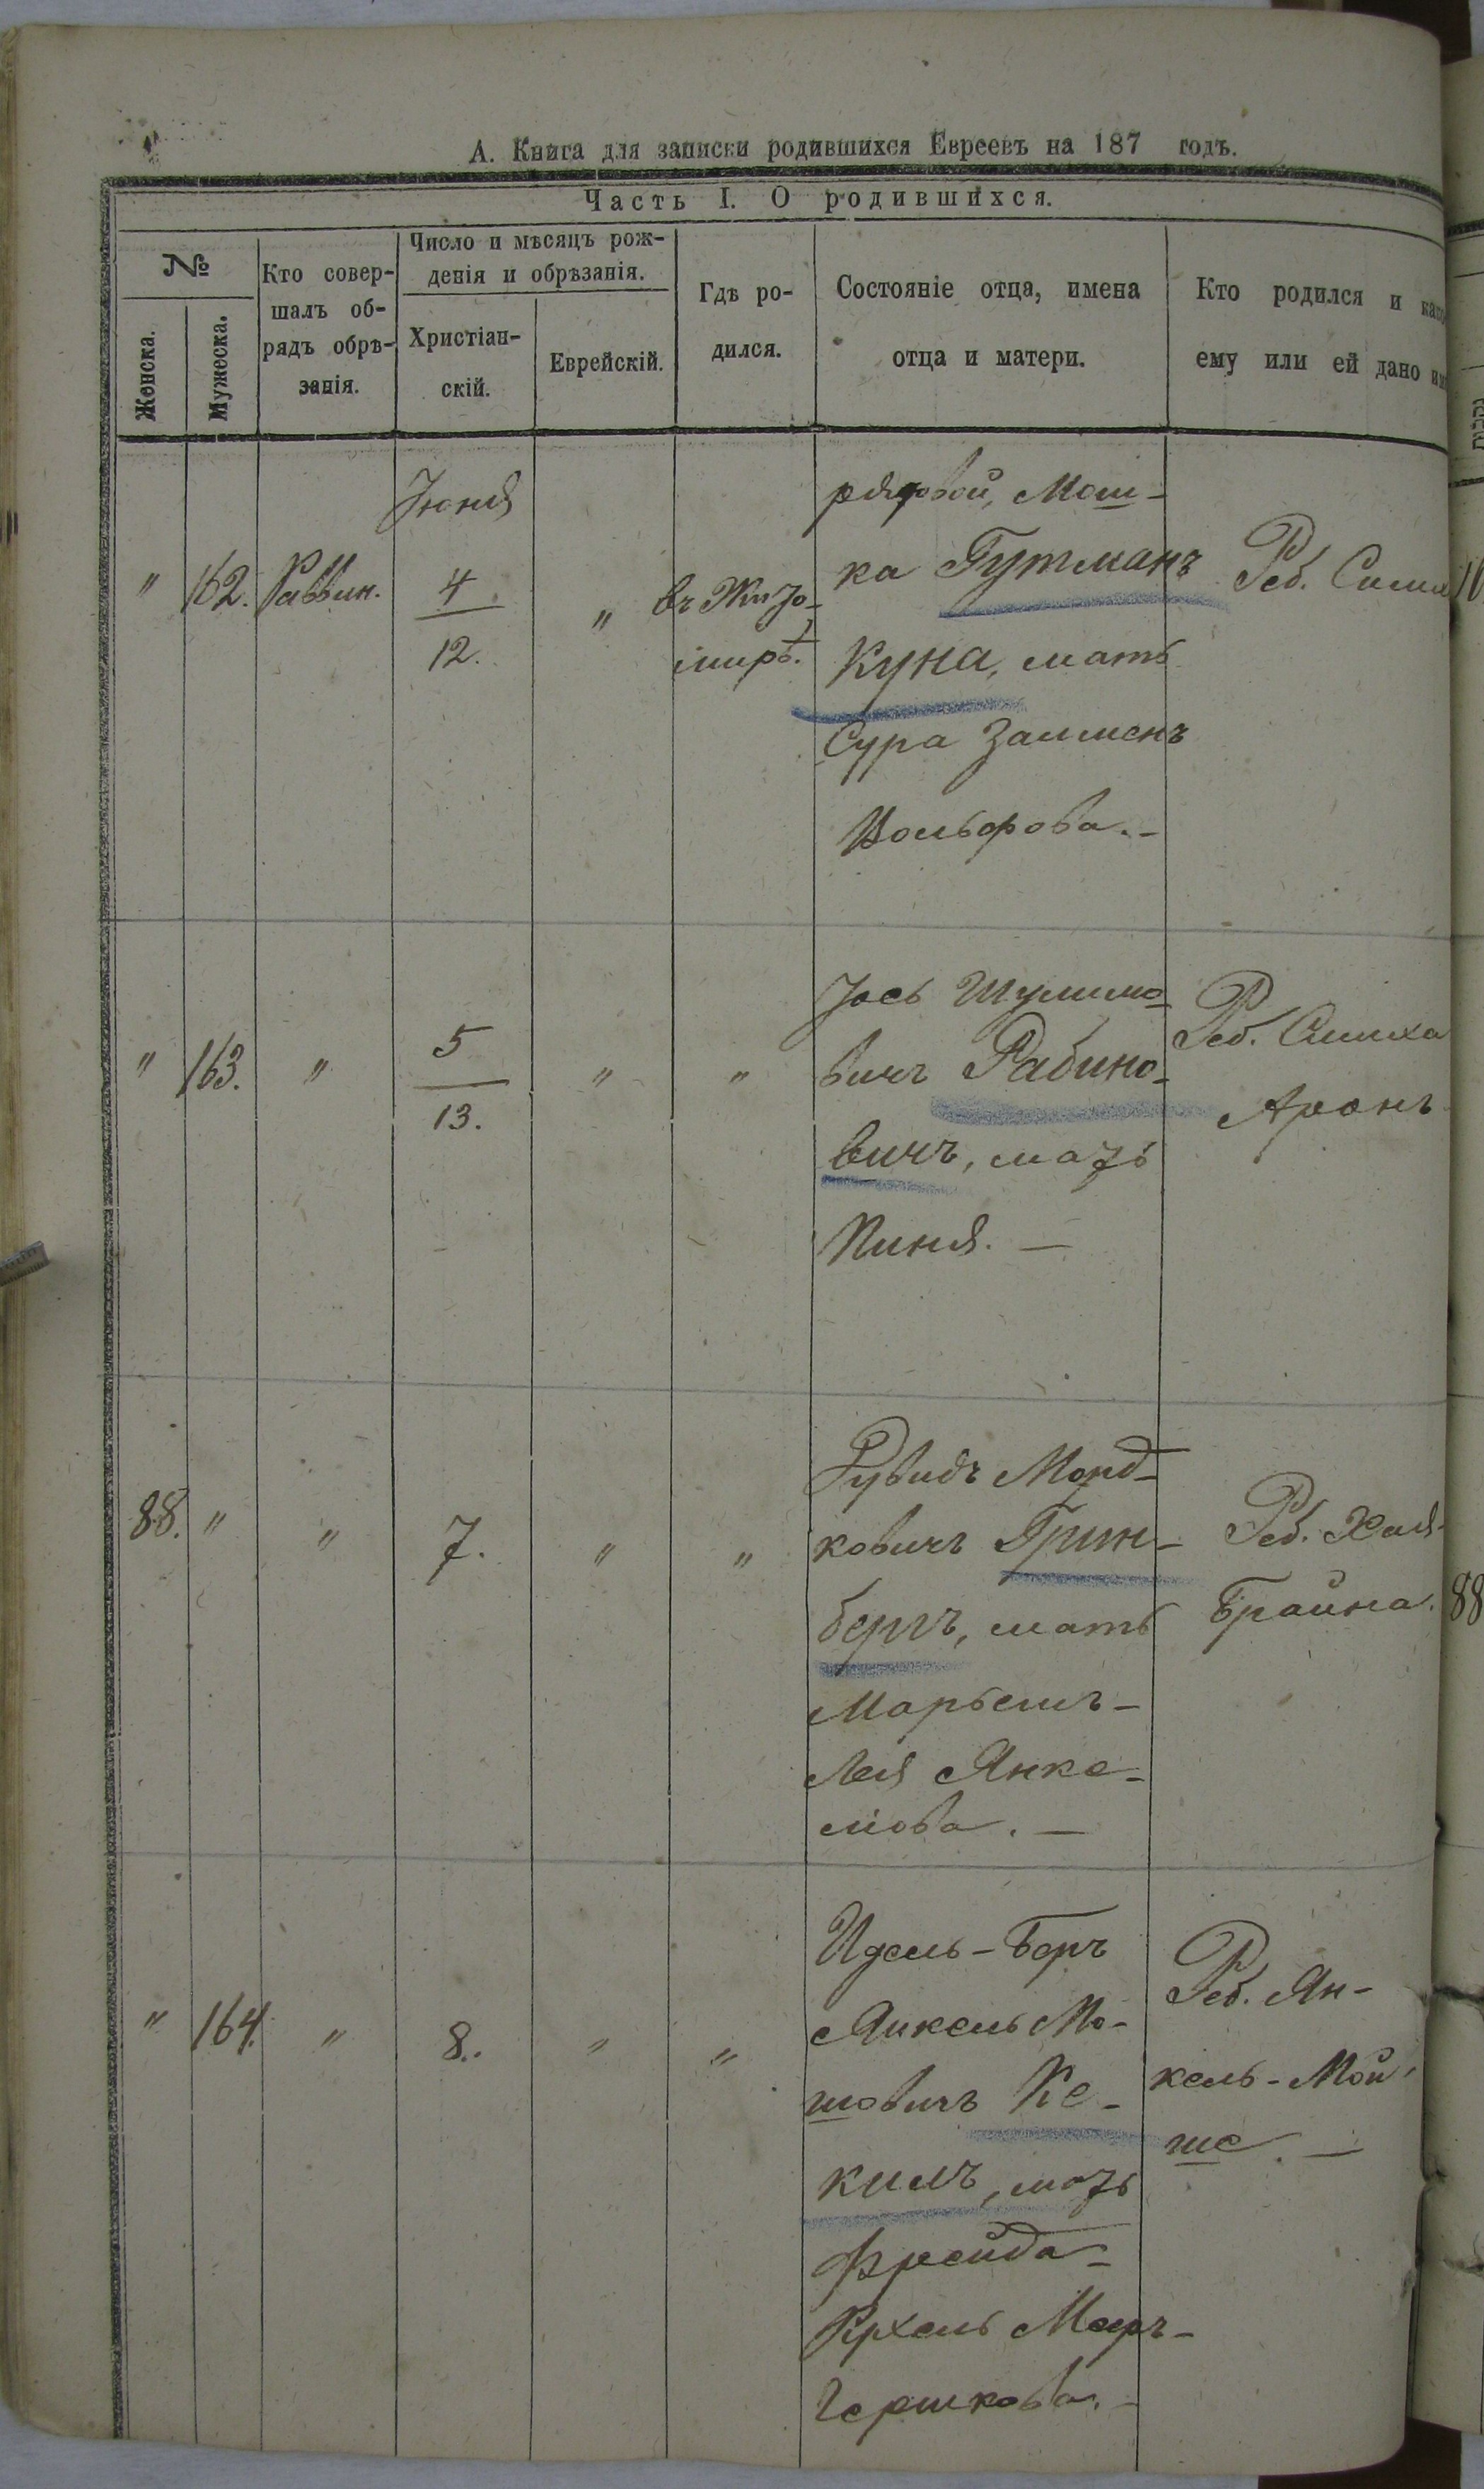 А. Книга для записки родившихся Евреевъ на 187 годъ.
Часть I. О родившихся.
№
Женска.
Мужеска.
Кто совер-
шалъ об-
рядъ обрѣ-
занія.
Число и мѣсяцъ рож-
денія и обрѣзанія.
Христіан-
скій.
Еврейскій.
Гдѣ ро-
дился.
Состояніе отца, имена
отца и матери.
Кто родился и како
ему или ей дано им
" 162. Раввин.
Іюня
4
12.
"
въ Жито-
мирѣ.
рядовой, Мош-
ка Гутманъ
Куна, мать
Сура Зальменъ
Вольфова.-
Реб. Симх
16
" 163. "
5
13.
" "
Іось Шулимо-
вичъ Рабино-
вичъ, мать
Пиня. —
Реб. Симха
Аронъ
88. " "
7.
" "
Рувидъ Морд-
ковичъ Грин-
бергъ, мать
Марьемъ-
Лея Янке-
лова. —
Реб. Хая-
Брайна.
88
" 164. "
8.
" "
Идель-Беръ
Янкель Мо-
шовичъ Ке-
килъ, мать
Фрейда-
Рухель Меер-
Гершкова. -
Реб. Ян-
кель-Мой-
ше. —